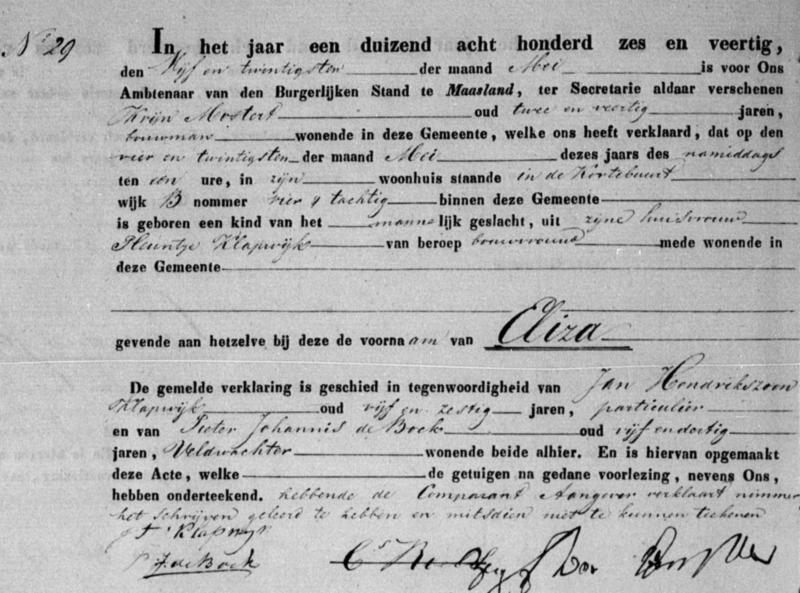 No 29
In het jaar een duizend acht honderd zes en veertig,
den Vijf en twintigsten der maand Mei is voor Ons
Ambtenaar van den Burgerlijken Stand te Maasland, ter Secretarie aldaar verschenen
Krijn Mostert oud twee en veertig jaren,
bouwman wonende in deze Gemeente, welke ons heeft verklaard, dat op den
vier en twintigsten der maand Mei dezes jaars des namiddags
ten een ure, in zijn woonhuis staande in de Kortebuurt
wijk B nommer vier & tachtig binnen deze Gemeente
is geboren een kind van het mannelijk geslacht, uit zijne huisvrouw
Pleuntje Klapwijk van beroep bouwvrouw mede wonende in
deze Gemeente
gevende aan hetzelve bij deze de voornaam van Eliza
De gemelde verklaring is geschied in tegenwoordigheid van Jan Hendrikszoon
Klapwijk oud vijf en zestig jaren, particulier
en van Pieter Johannis de Bock oud vijf en dertig
jaren, Veldwachter wonende beide alhier. En is hiervan opgemaakt
deze Acte, welke de getuigen na gedane voorlezing, nevens Ons,
hebben onderteekend. hebbende de Comparant Aangever verklaart nimmer
het schrijven geleerd te hebben en mitsdien niet te kunnen teekenen
Klapwijk
P J de Bock